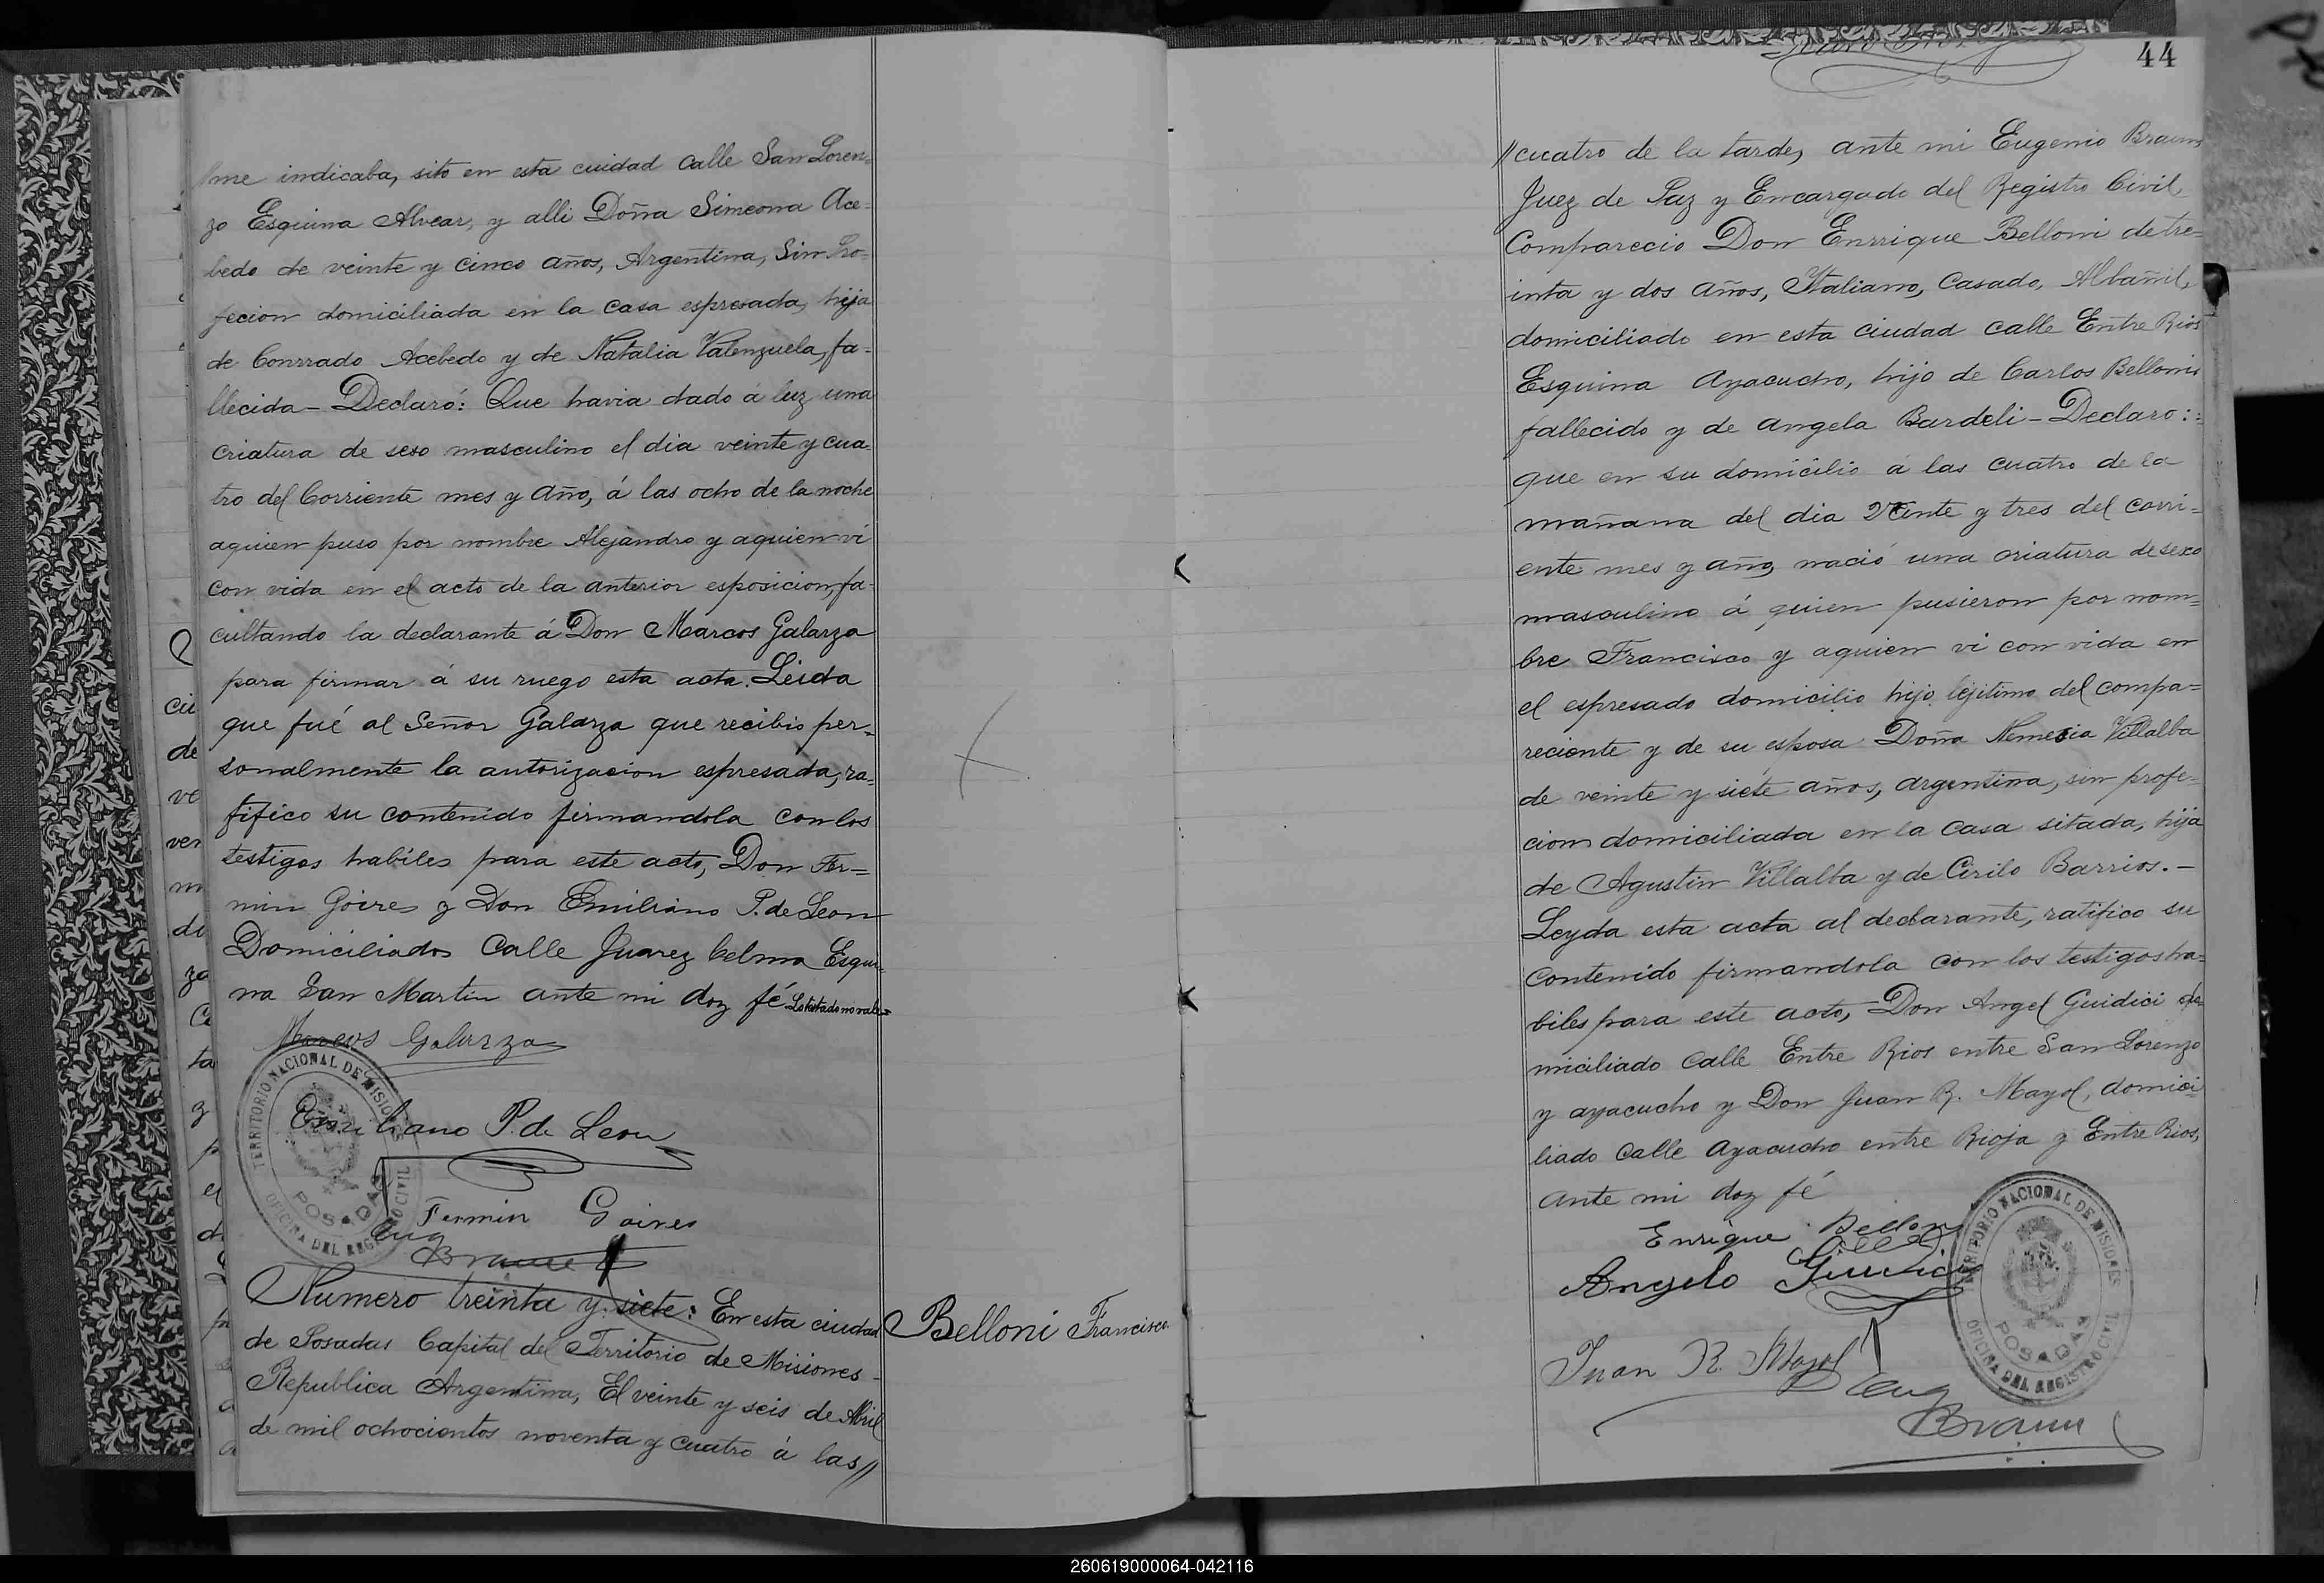 me indicaba, sito en esta cuidad Calle San Loren-
zo Esquina Alvear, y alli Doña Simeona Ace-
bedo de veinte y cinco años, Argentina, Sin Pro-
fecion domiciliada en la Casa espresada, hija
de Conrrado Acebedo y de Natalia Valenzuela, fa-
llecida - Declaró: Que havia dado á luz una
criatura de sexo masculino el dia veinte y cua-
tro del Corriente mes y Año, á las ocho de la noche
aquien puso por nombre Alejandro y aquien vi
con vida en el acto de la anterior esposicion, fa-
cultando la declarante á Don Marcos Galarza
para firmar á su ruego esta acta. Leida
que fué al Señor Galarza que recibio per-
sonalmente la autorizacion espresada, ra-
tifico su contenido firmandola con los
testigos habiles para este acto, Don Fer=
min Goires y Don Emiliano P. de Leon
Domiciliados Calle Juarez Celman Esqui-
na San Martin ante mi doy fé Lo testado no vale=
Marcos Galarza
TERRITORIO NACIONAL DE MISIONES
POSADAS
OFICINA DEL REGISTRO CIVIL
Emiliano P. de Leon
Fermin Goires
Eug
Braun
Numero treinta y siete: En esta ciudad
de Posadas Capital del Territorio de Misiones -
Republica Argentina, El veinte y seis de Abril
de mil ochocientos noventa y cuatro á las//
Belloni Francisco
44
//cuatro de la tarde, ante mi Eugenio Braun
Juez de Paz y Encargado del Registro Civil,
Comparecio Don Enrrique Belloni de tre=
inta y dos Años, Italiano, Casado, Albañil,
domiciliado en esta ciudad calle Entre Rios
Esquina Ayacucho, hijo de Carlos Belloni
fallecido y de Angela Bardeli - Declaro:=
que en su domicilio á las cuatro de la
mañana del dia Veinte y tres del corri=
ente mes y año, nació una criatura de sexo
masculino á quien pusieron por nom=
bre Francisco y aquien vi con vida en
el espresado domicilio hijo lejitimo del compa=
reciente y de su esposa Doña Nemesia Villalba
de veinte y siete años, argentina, sin profe=
cion domiciliada en la Casa sitada, hija
de Agustin Villalba y de Cirilo Barrios. -
Leyda esta acta al declarante, ratifico su
contenido firmandola con los testigos ha=
biles para este acto, Don Angel Guidici do
miciliado Calle Entre Rios entre San Lorenzo
y ayacucho y Don Juan R. Mayol, domici-
liado Calle Ayacucho entre Rioja y Entre Rios,
ante mi doy fé
Enrique Belloni
Angelo Giudici
TERRITORIO NACIONAL DE MISIONES
POSADAS
OFICINA DEL REGISTRO CIVIL
Juan R. Mayol
Eug
Braun
260619000064-042116